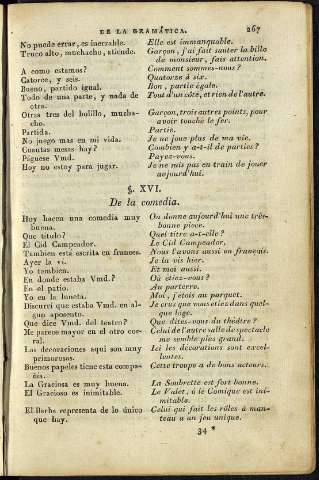 DE LA GRAMÁTICA. 267
No puede errar, es inerrable. Elle est immanquable.
Truco alto, muchacho, atiende. Garçon, j'ai fait sauter la bille de monsieur, fais attention.
A como estamos? Comment sommes-nous?
Catorce, y seis. Quatorze à six.
Bueno, partido igual. Bon, partie égale.
Todo de una parte, y nada de otra. Tout d'un côté, et rien de l'autre.
Otras tres del bolillo, muchacho. Garçon, trois autres points, pour avoir touché le fer.
Partida. Partie.
No juego mas en mi vida. Je ne joue plus de ma vie.
Cuantas mesas hay? Combien y a-t-il de parties?
Páguese Vmd. Payez-vous.
Hoy no estoy para jugar. Je ne suis pas en train de jouer aujourd'hui.
§. XVI.
De la comedia.
Hoy hacen una comedia muy buena. On donne aujourd'hui une très-bonne piece.
Que titulo? Quel titre a-t-elle?
El Cid Campeador. Le Cid Campeador.
Tambien está escrita en frances. Nous l'avons aussi en français.
Ayer la ví. Je la vis hier.
Yo tambien. Et moi aussi.
En donde estaba Vmd.? Où étiez-vous?
En el patio. Au parterre.
Yo en la luneta. Moi, j'étois au parquet.
Discurrí que estaba Vmd. en algun aposento. Je crus que vous étiez dans quelque loge.
Que dice Vmd. del teatro? Que dites-vous du théâtre?
Me parece mayor en el otro corral. Celui de l'autre salle de spectacle me semble plus grand.
Las decoraciones aquí son muy primorosas. Ici les décorations sont excellentes.
Buenos papeles tiene esta compañía. Cette troupe a de bons acteurs.
La Graciosa es muy buena. La Soubrette est fort bonne.
El Gracioso es inimitable. Le Valet, ó le Comique est inimitable.
El Barba representa de lo único que hay. Celui qui fait les rôles à manteau a un jeu unique.
34 *